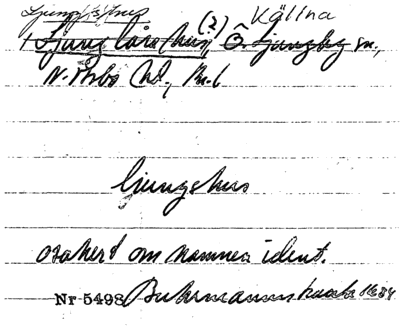 Ljungshus
Ljunglåsahus (?) Källna
Ö. Ljungby sn,
N. Åsbo hd, M. l
ljungshus
osäkert om namnen ident.
Nr 5498 Buhrmanns karta 1684